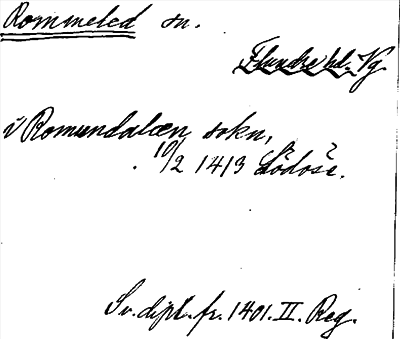 Rommeled sn.
Flundre hd. Vg
i Romundalæn sokn,
10/2 1413 Lödose.
Sv. dipl. fr. 1401. II. Reg.